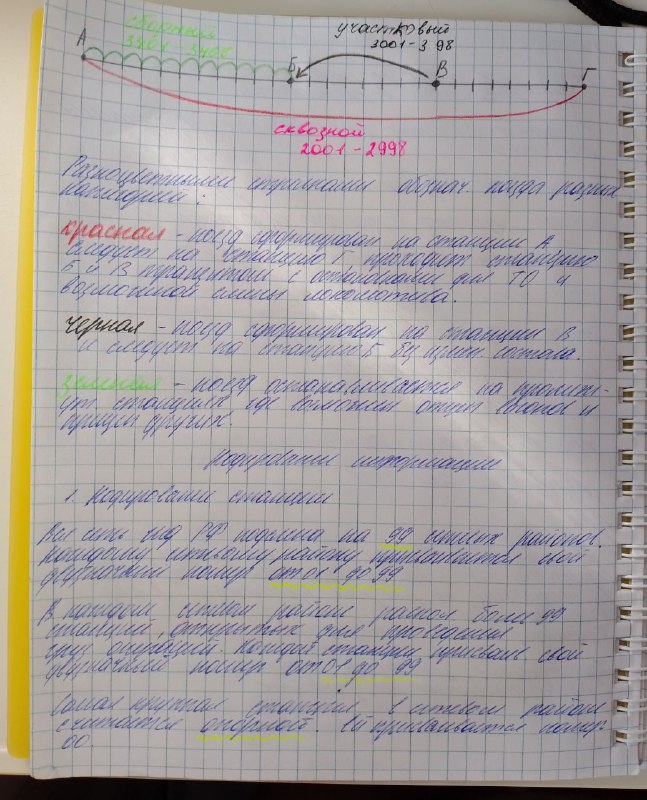 сборный
3401 - 3408
участковый
3001 - 3 98
А
Б
В
Г
сквозной
2001 - 2998
Разноцветными стрелками обознач. поезда разных
категорий:
красная - поезд сформирован на станции А
следует на станцию Г проходит станцию
Б и В транзитом с остановками для ТО и
возможной смены локомотива.
черная - поезд сформирован на станции В
и следует на станцию Б без измен. состава.
зеленая - поезд останавливается на промеж-
ут. станциях где возможен отцеп вагонов и
прицеп других.
Кодирование информации
1. Кодирование станции
Вся сеть жд РФ поделена на 99 сетевых районов.
Каждому сетевому району присваивается свой
двузначный номер от 01 до 99
В каждом сетевом районе распол. более 99
станций, открытых для проведения
груз. операций. Каждой станции присваив. свой
двузначный номер от 01 до 99
Самая крупная станция в сетевом районе
считается опорной. Ей присваивается номер
00.